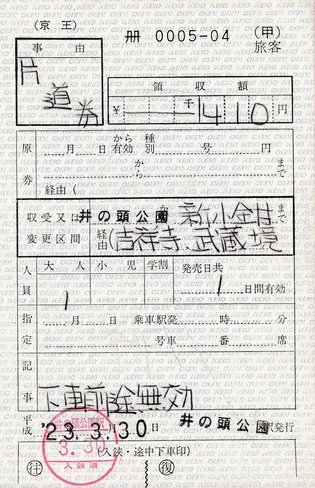 (京王) 冊 0005-04 (甲)
旅客
事由 片道券
領収額
¥ 千 410円
原券 月 日 から有効 種別 号 円
から まで
経由(
収受又は変更区間 井の頭公園 から 新小金井 まで
経由(吉祥寺.武蔵境
人員 大人 小児 学割 発売日共
1 1日間有効
指定 月 日 乗車駅発 時 分
号車 番 席
記事
下車前途無効
平成 '23.3.30日 井の頭公園駅発行
井の頭公園駅
3.30
入鋏済
(入鋏・途中下車印)
往 復